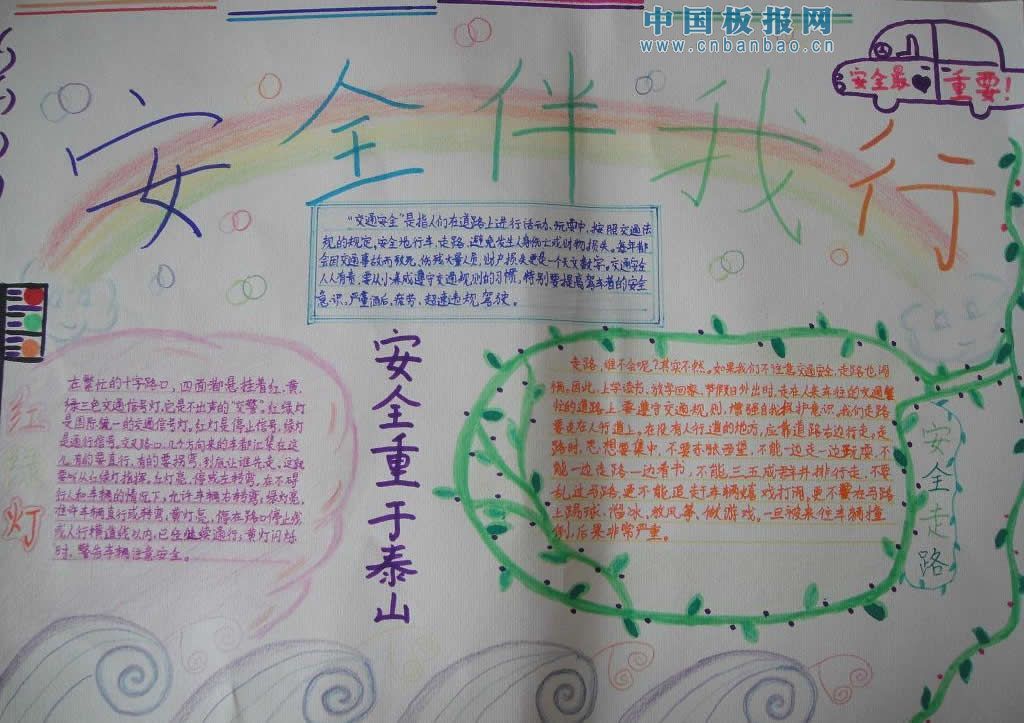 中国板报网
www.cnbanbao.cn
安全最重要!
安全伴我行
“交通安全”是指人们在道路上进行活动、玩耍中,按照交通法
规的规定,安全地行车、走路,避免发生人身伤亡或财物损失。每年都
会因交通事故而致死,伤残大量人员,财产损失更是一个天文数字。交通安全
人人有责,要从小养成遵守交通规则的习惯,特别要提高驾车者的安全
意识,严重酒后,疲劳,超速违规驾驶。
安全重于泰山
红绿灯
在繁忙的十字路口,四面都悬挂着红、黄、
绿三色交通信号灯,它是不出声的“交警”。红绿灯
是国际统一的交通信号灯。红灯是停止信号,绿灯
是通行信号。交叉路口,几个方向来的车都汇集在这
儿,有的要直行,有的要拐弯,到底让谁先走,这就
要听从红绿灯指挥。红灯亮,停或左转弯,在不碍
行人和车辆的情况下,允许车辆右转弯;绿灯亮,
准许车辆直行或转弯;黄灯亮,停在路口停止线
或人行横道线以内,已经继续通行;黄灯闪烁
时,警告车辆注意安全。
走路,谁不会呢?其实不然。如果我们不注意交通安全,走路也闯
祸。因此,上学读书、放学回家、节假日外出时,走在人来车往的交通繁
忙的道路上,要遵守交通规则,增强自我救护意识。我们走路
要走在人行道上。在没有人行道的地方,应靠道路右边行走。走
路时,思想要集中,不要东张西望,不能一边走一边玩耍,不
能一边走路一边看书,不能三五成群并排行走,不要
乱过马路,更不能追赶车辆嬉戏打闹,更不要在马路
上踢球、溜冰、放风筝、做游戏。一旦被来往车辆撞
倒,后果非常严重。
安全走路